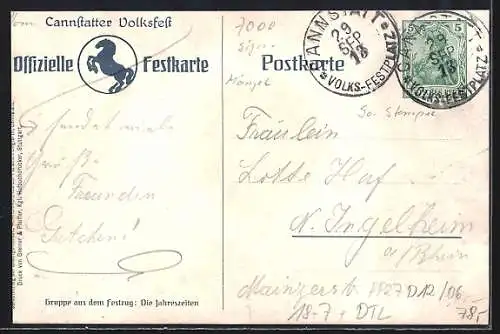 Vom
Cannstatter Volksfest
Offizielle Festkarte
sendet viele
Grüße
Freundin
Gretchen!
Gruppe aus dem Festzug: Die Jahreszeiten
Druck von Greiner & Pfeiffer, Kgl. Hofbuchdrucker, Stuttgart.
7000
Sign.
Mängel
Postkarte
CANNSTATT
29
SEP
13
VOLKS-FESTPLATZ
5
29
SEP
13
VOLKS-FESTPLATZ
So. Stempel
Fräulein
Lotte Huf
N. Ingelheim
a/Rhein
Mainzerstr.
D12/06
18-7 + DTL
78,-